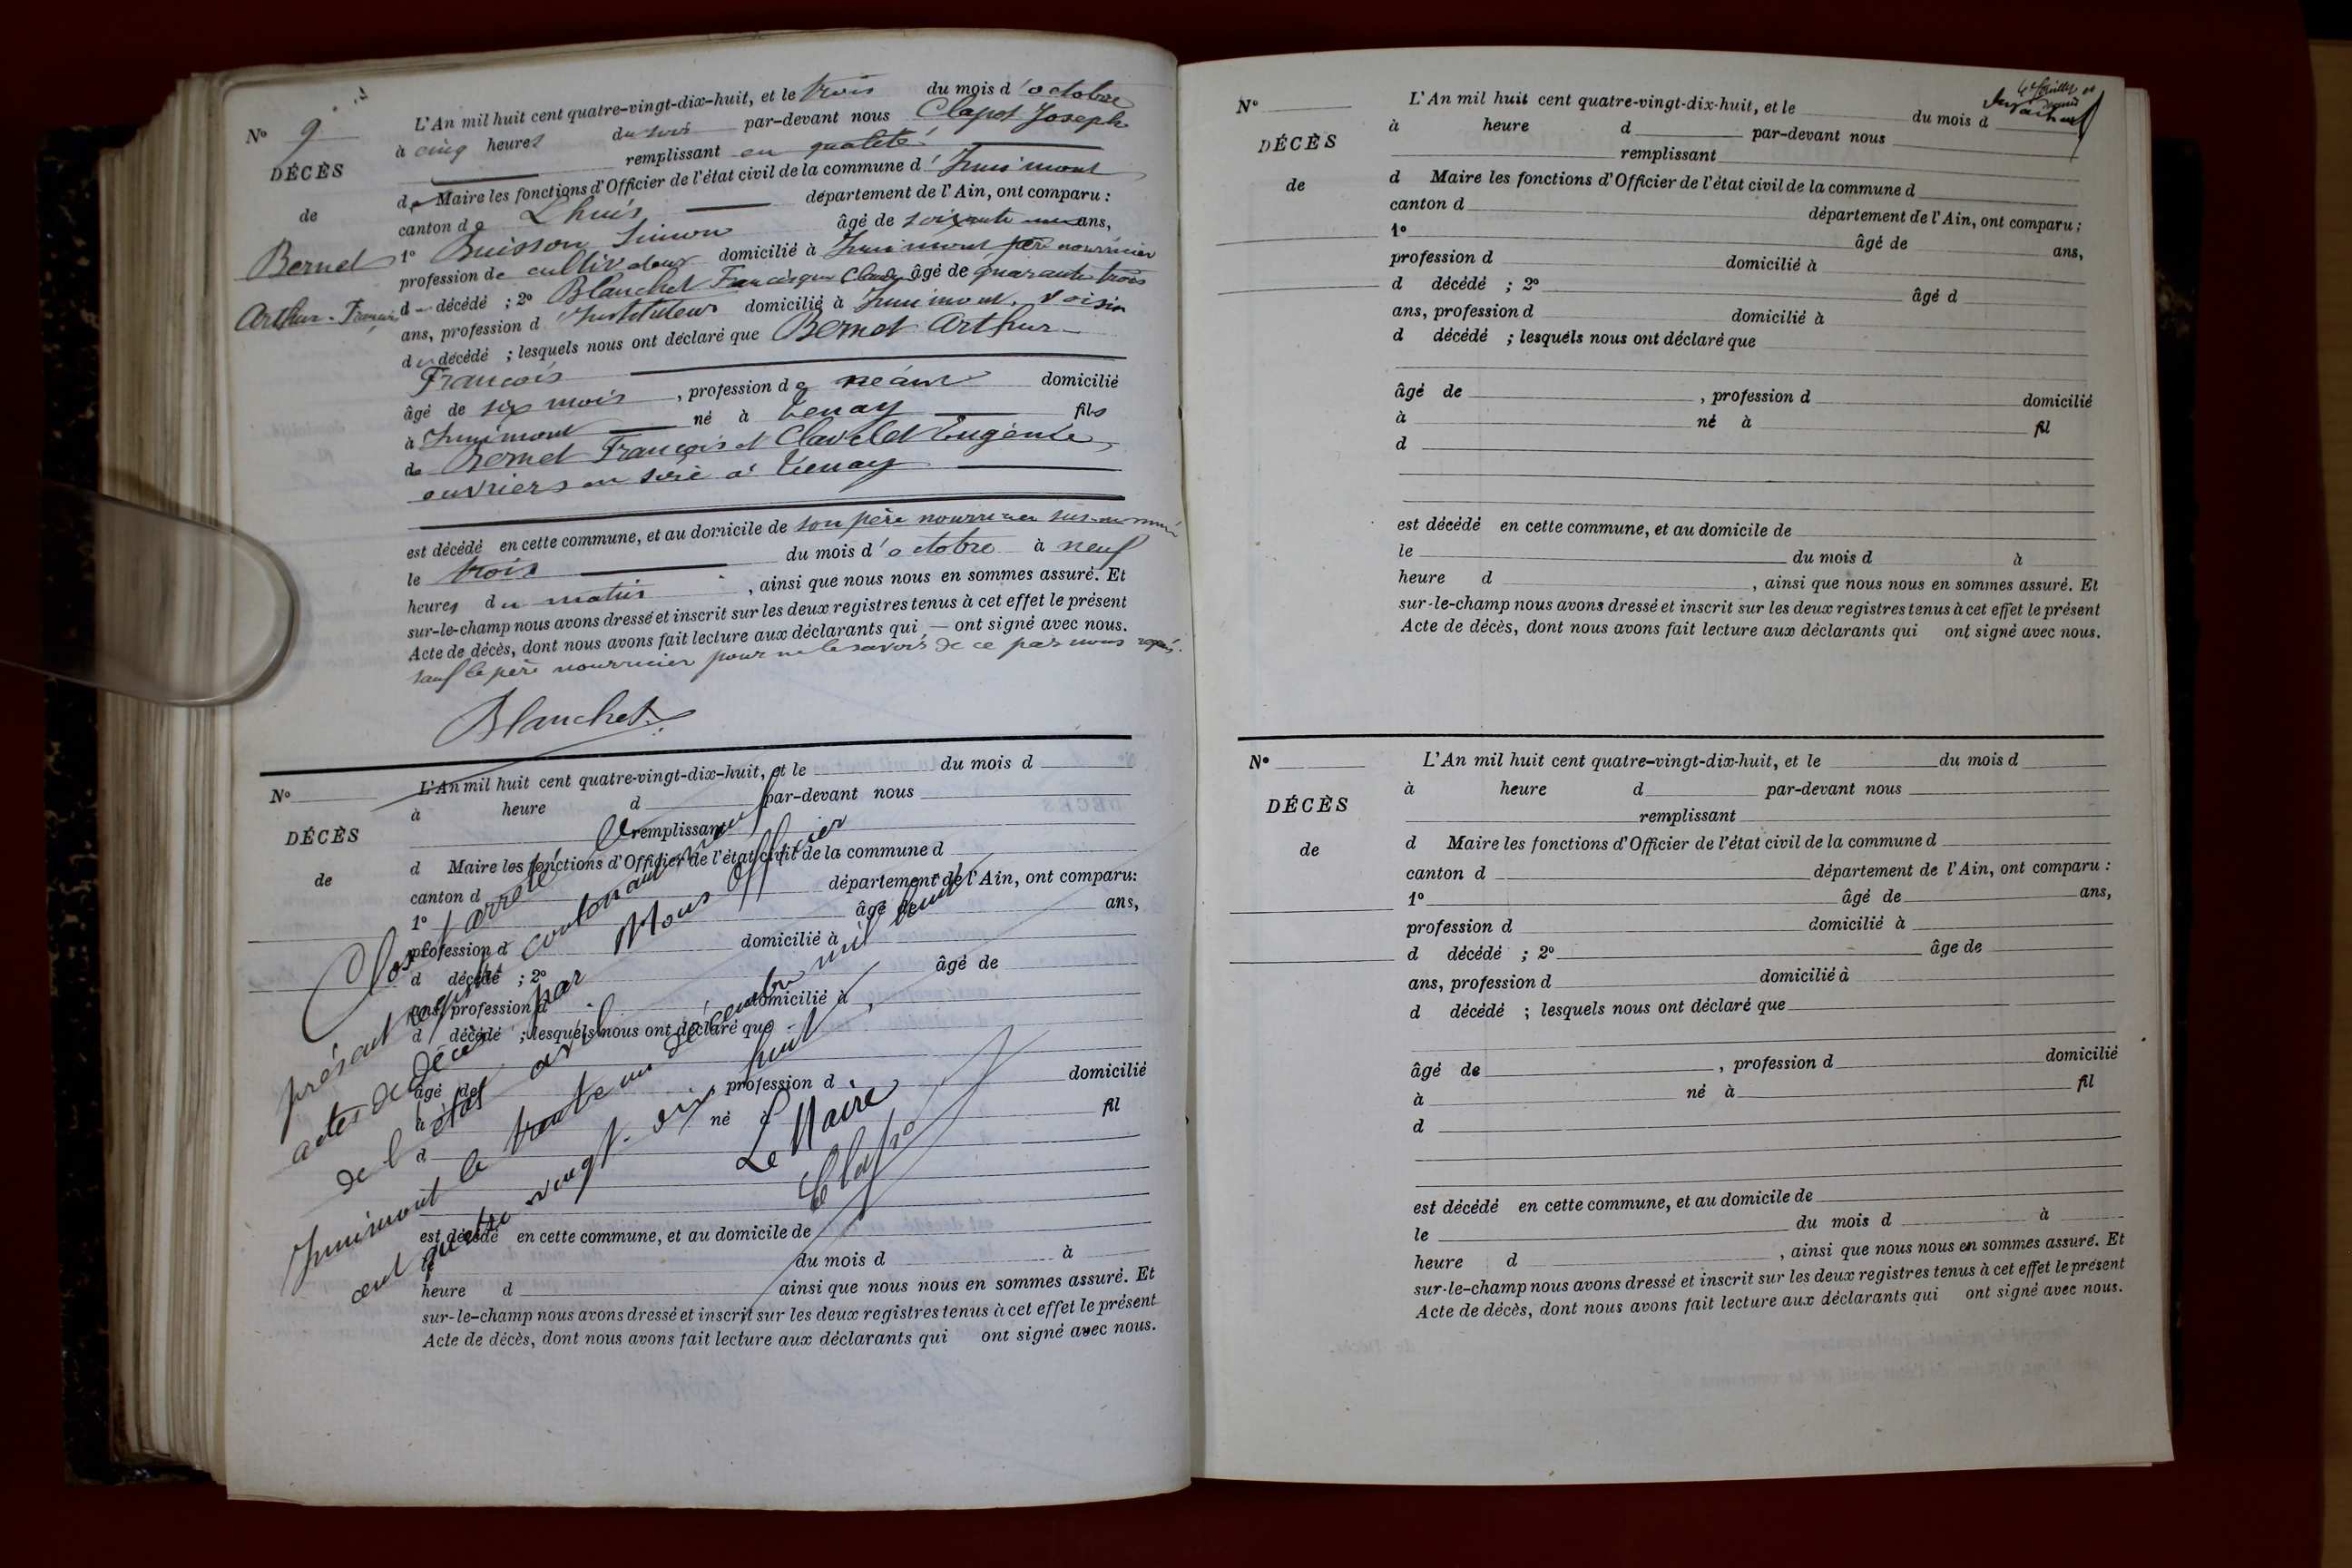 N° 9
DÉCÈS
de
Bernet
Arthur-François
L'An mil huit cent quatre-vingt-dix-huit, et le trois du mois d'octobre
à cinq heures du soir par-devant nous Clapot Joseph
remplissant en qualité
de Maire les fonctions d'Officier de l'état civil de la commune d'Innimont
canton de Lhuis département de l'Ain, ont comparu :
1° Buisson Simon âgé de soixante ans,
profession de cultivateur domicilié à Innimont père nourricier
d décédé ; 2° Blanchet Francisque Claude âgé de quarante trois
ans, profession d'instituteur domicilié à Innimont, voisin
du décédé ; lesquels nous ont déclaré que Bernet Arthur
François
âgé de six mois, profession de néant domicilié
à Innimont né à Tenay fils
de Bernet François et Clavelet Eugénie,
ouvriers en soie à Tenay
est décédé en cette commune, et au domicile de son père nourricier sus-nommé
le trois du mois d'octobre à neuf
heures du matin, ainsi que nous nous en sommes assuré. Et
sur-le-champ nous avons dressé et inscrit sur les deux registres tenus à cet effet le présent
Acte de décès, dont nous avons fait lecture aux déclarants qui — ont signé avec nous.
sauf le père nourricier pour ne le savoir de ce par nous requis.
Blanchet
N°
DÉCÈS
de
L'An mil huit cent quatre-vingt-dix-huit, et le du mois d
à heure d par-devant nous
remplissant
d Maire les fonctions d'Officier de l'état civil de la commune d
canton d département de l'Ain, ont comparu:
1° âgé de ans,
profession d domicilié à
d décédé ; 2° âgé de
ans, profession d domicilié à
d décédé ; lesquels nous ont déclaré que
âgé de , profession d domicilié
à né à fil
d
est décédé en cette commune, et au domicile de
le du mois d à
heure d ainsi que nous nous en sommes assuré. Et
sur-le-champ nous avons dressé et inscrit sur les deux registres tenus à cet effet le présent
Acte de décès, dont nous avons fait lecture aux déclarants qui ont signé avec nous.
Clos et arrêté le
présent registre contenant neuf
actes de décès par Nous officier
de l'état civil
Innimont le trente un décembre mil huit
cent quatre vingt-dix huit,
Le Maire
Clapot
N°
DÉCÈS
de
L'An mil huit cent quatre-vingt-dix-huit, et le du mois d
à heure d par-devant nous
remplissant
d Maire les fonctions d'Officier de l'état civil de la commune d
canton d département de l'Ain, ont comparu ;
1° âgé de ans,
profession d domicilié à
d décédé ; 2° âgé d
ans, profession d domicilié à
d décédé ; lesquels nous ont déclaré que
âgé de , profession d domicilié
à né à fil
d
est décédé en cette commune, et au domicile de
le du mois d à
heure d , ainsi que nous nous en sommes assuré. Et
sur-le-champ nous avons dressé et inscrit sur les deux registres tenus à cet effet le présent
Acte de décès, dont nous avons fait lecture aux déclarants qui ont signé avec nous.
N°
DÉCÈS
de
L'An mil huit cent quatre-vingt-dix-huit, et le du mois d
à heure d par-devant nous
remplissant
d Maire les fonctions d'Officier de l'état civil de la commune d
canton d département de l'Ain, ont comparu :
1° âgé de ans,
profession d domicilié à
d décédé ; 2° âge de
ans, profession d domicilié à
d décédé ; lesquels nous ont déclaré que
âgé de , profession d domicilié
à né à fil
d
est décédé en cette commune, et au domicile de
le du mois d à
heure d , ainsi que nous nous en sommes assuré. Et
sur-le-champ nous avons dressé et inscrit sur les deux registres tenus à cet effet le présent
Acte de décès, dont nous avons fait lecture aux déclarants qui ont signé avec nous.